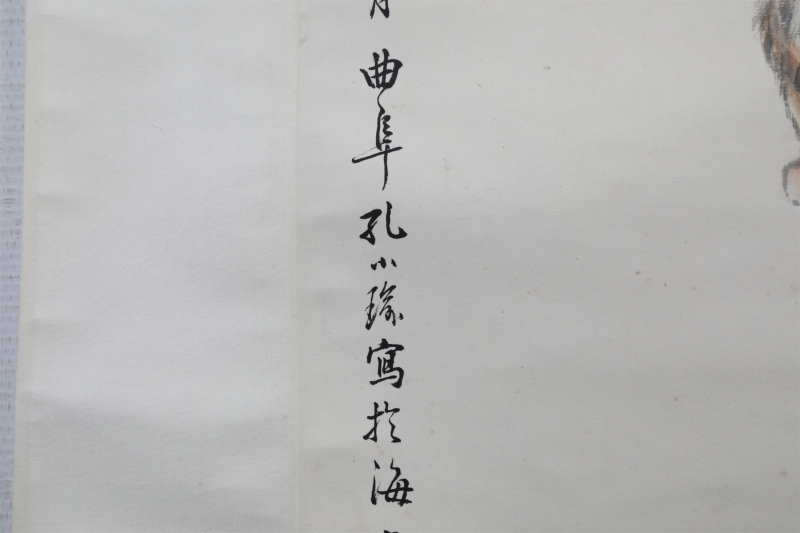 月曲阜孔小瑜寫於海